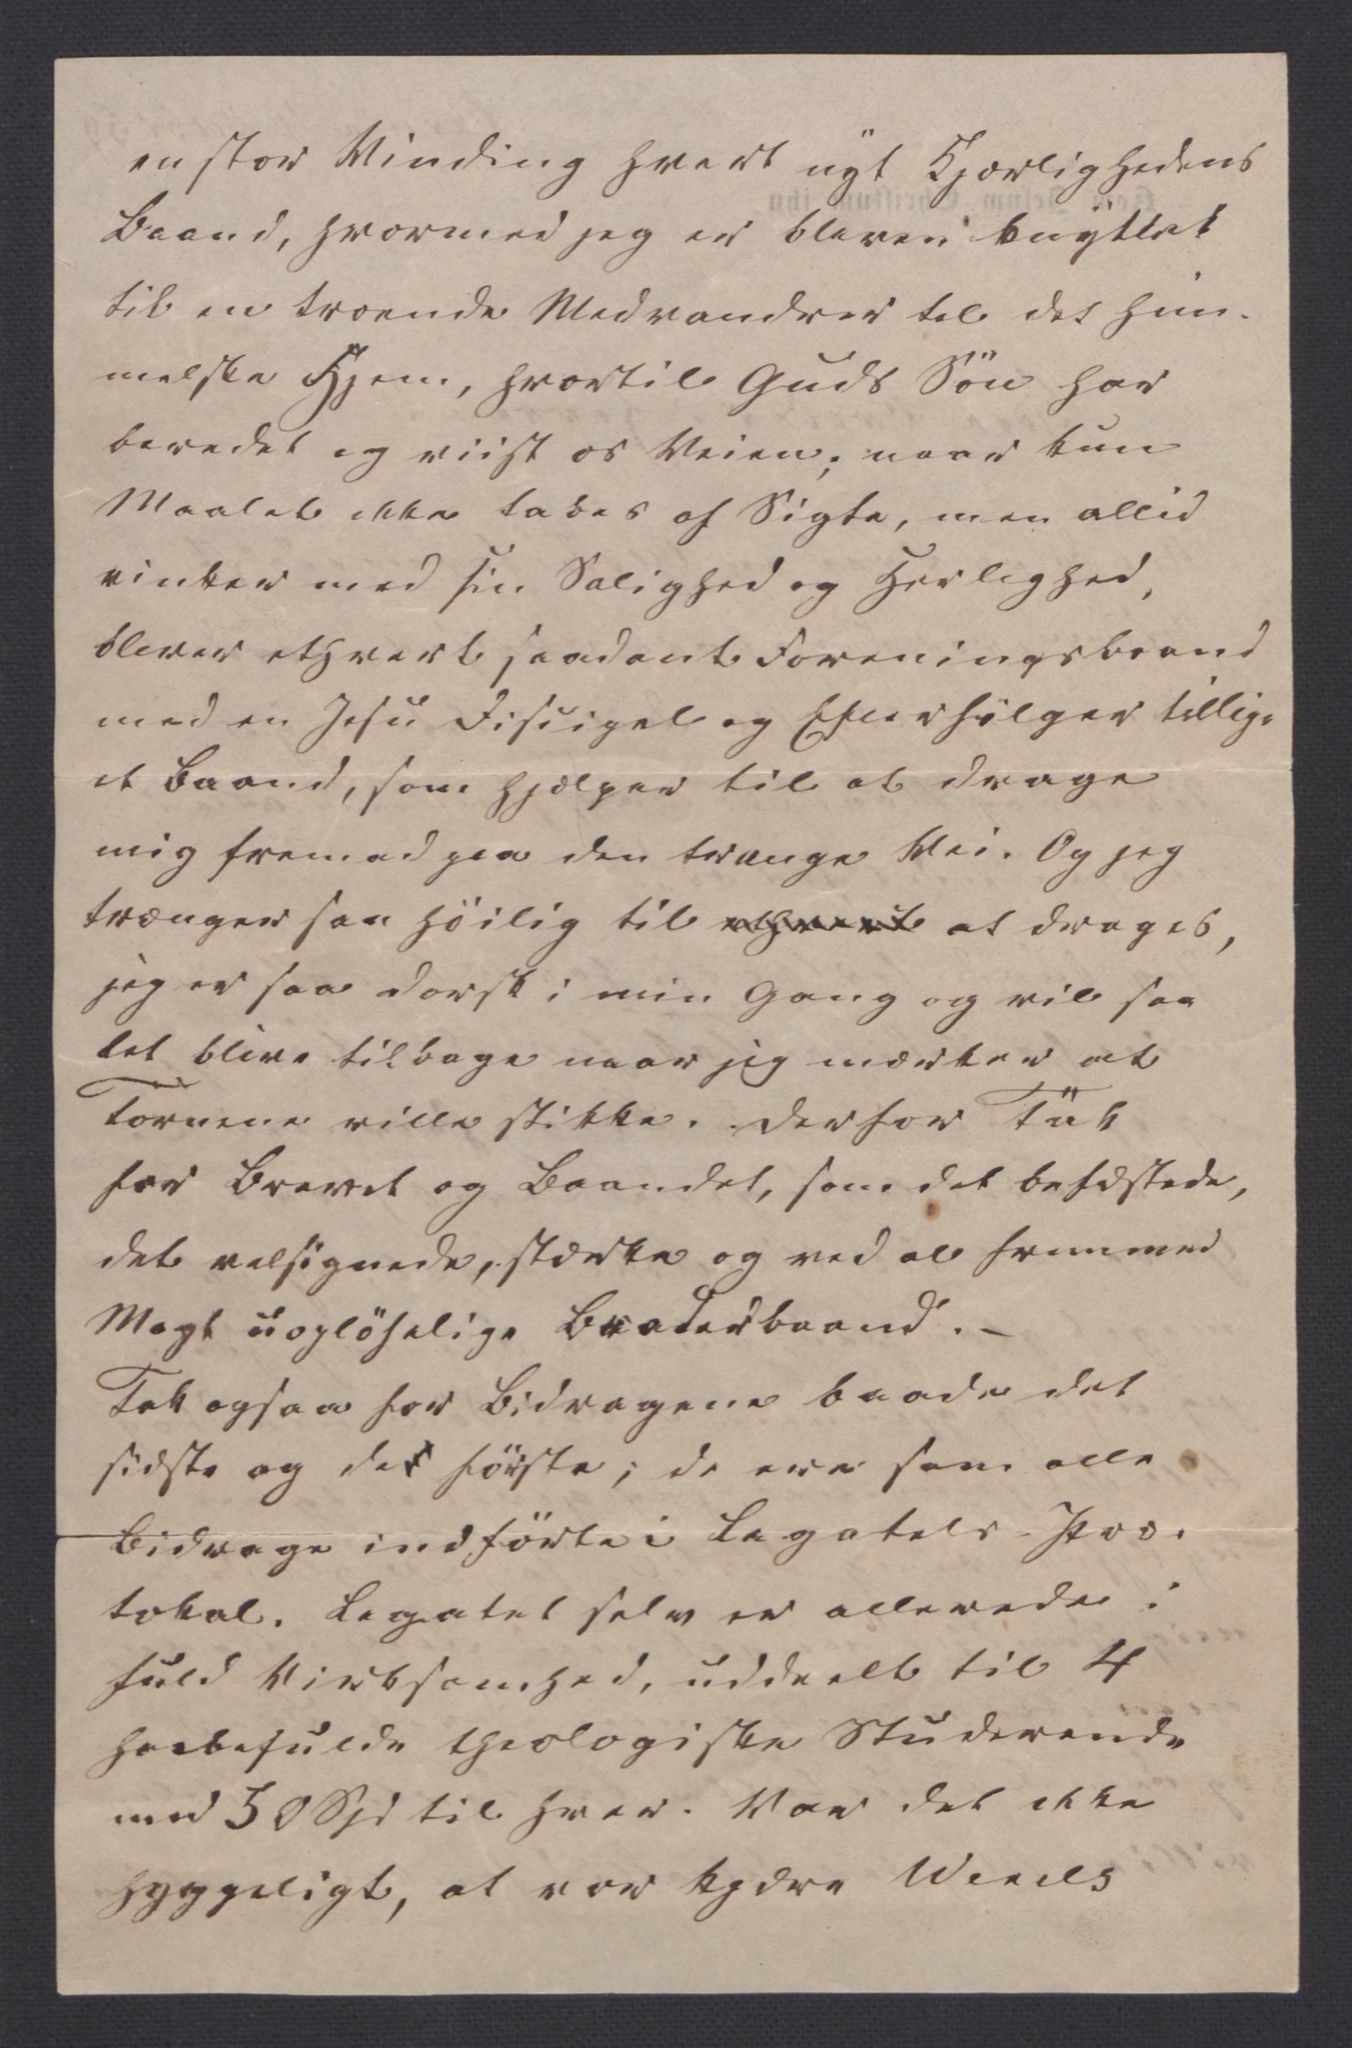 en stor Vinding hvert nyt Kjærlighedens
Baand, hvormed jeg er bleven knyttet
til en troende Medvandrer til det him-
melske Hjem, hvortil Guds Sön har
beredet og viist os Veien; naar kun
Maalet ikke tabes af Sigte, men altid
vinker med sin Salighed og Herlighed,
bliver ethvert saadant Foreningsbaand
med en Jesu Discipel og Efterfölger tillige
et Baand, som hjælper til at drage
mig fremad paa den trange Vei. Og jeg
trænger saa höilig til ethvert at drages,
jeg er saa dorsk i min Gang og vil saa
let blive tilbage naar jeg mærker at
Tornene ville stikke. Derfor Tak
for Brevet og Baandet, som det befæstede,
det velsignede, stærke og ved al fremmed
Magt uoplöselige Broderbaand. –
Tak ogsaa for Bidragene baade det
sidste og det förste; de ere som alle
Bidrage indförte i Legatets Pro-
tokol. Legatet selv er allerede i
fuld Virksomhed, uddeelt til 4
haabefulde theologiske Studerende
med 50 Spd til hver. Var det ikke
hyggeligt, at vor kjære Wexels